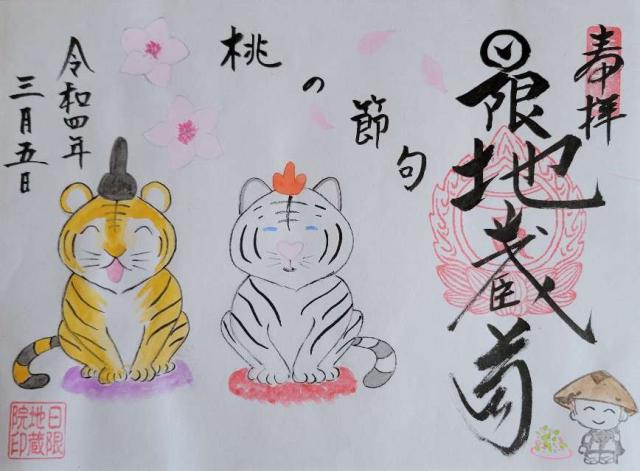 奉拝
日限地蔵尊
桃の節句
令和四年
三月五日
日限
地蔵
院印